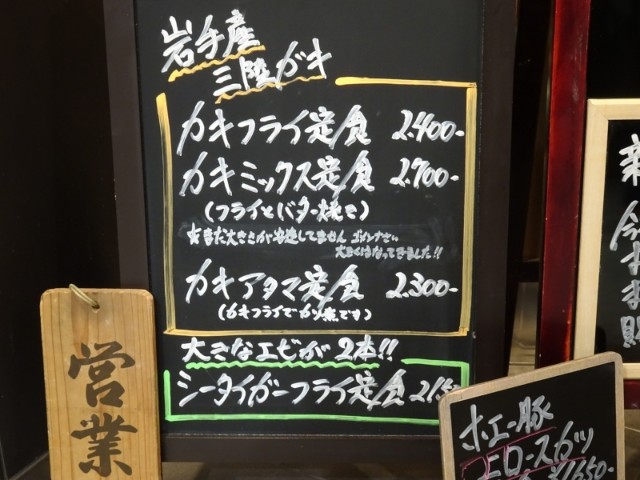 岩手産
三陸ガキ
カキフライ定食 2.400-
カキミックス定食 2.700-
(フライとバター焼き)
★まだ大きさが安定してません ゴメンナさい
大きくはなってきました!!
カキアタマ定食 2.300-
(カキフライでカツ煮です)
大きなエビが2本!!
シータイガーフライ定食 215
営業
ホエー豚
上ロースカツ
¥1650-